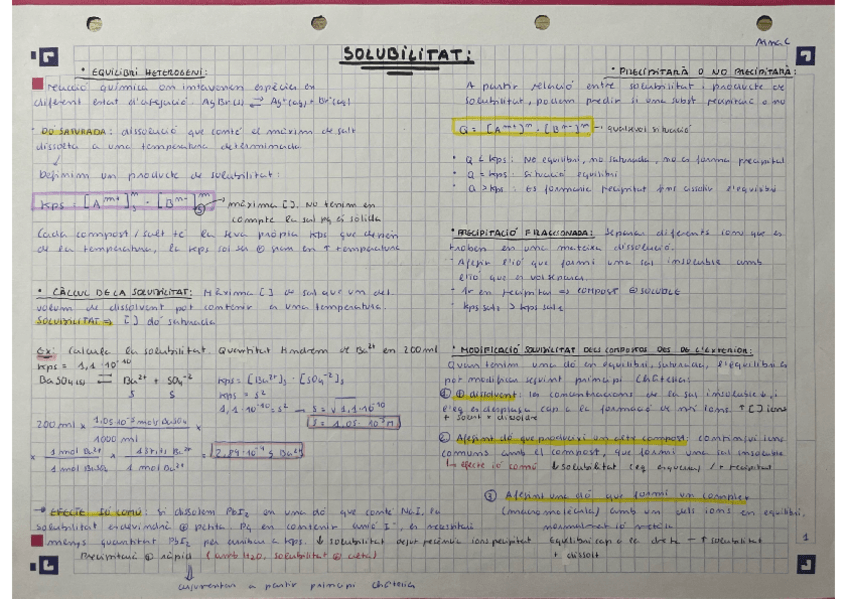 Anna C
SOLUBILITAT:
• EQUILIBRI HETEROGENI:
relació química on intervenen espècies en
diferent estat d'agregació. AgBr(s) ⇄ Ag⁺(aq) + Br⁻(aq)
• DÓ SATURADA: dissolució que conté el màxim de salt
dissolta a una temperatura determinada
Definim un producte de solubilitat:
Kps = [Aᵐ⁺]ₛⁿ · [Bⁿ⁻]ₛᵐ → màxima []. No tenim en
compte la sal pq és sòlida
Cada compost/salt té la seva pròpia Kps que depèn
de la temperatura, la Kps sol ser ⊕ gran en ↑ temperatura
• CÀLCUL DE LA SOLUBILITAT: Màxima [] de sal que un det.
volum de dissolvent pot contenir a una temperatura.
SOLUBILITAT ⇒ [] dó saturada
Ex: Calcula la solubilitat. Quantitat tindrem de Ba²⁺ en 200 ml
Kps = 1,1·10⁻¹⁰
BaSO₄(s) ⇄ Ba²⁺ + SO₄⁻² Kps = [Ba²⁺]ₛ · [SO₄⁻²]ₛ
S S Kps = s²
1,1·10⁻¹⁰ = s² → s = √1,1·10⁻¹⁰
s = 1,05·10⁻⁵ M
200 ml × 1,05·10⁻⁵ mol BaSO₄ / 1000 ml ×
× 1 mol Ba²⁺ / 1 mol BaSO₄ × 137,3 g Ba²⁺ / 1 mol Ba²⁺ = 2,89·10⁻⁴ g Ba²⁺
→ EFECTE IÓ COMÚ: si dissolem PbI₂ en una dó que conté NaI, la
solubilitat esdevindrà ⊕ petita. Pq en contenir anió I⁻, es necessita
menys quantitat PbI₂ per arribar a Kps. ↓ solubilitat degut presència ions precipitat
Precipitació ⊕ ràpid (amb H₂O, solubilitat ⊕ alta)
argumentar a partir principi Châtelier
• PRECIPITARÀ O NO PRECIPITARÀ:
A partir relació entre solubilitat i producte de
solubilitat, podem predir si una subst precipitarà o no
Q = [Aᵐ⁺]ⁿ · [Bⁿ⁻]ᵐ → qualsevol situació
• Q < Kps: No equilibri, no saturada, no es forma precipitat
• Q = Kps: Situació equilibri
• Q > Kps: Es formarà precipitat fins assolir l'equilibri
• PRECIPITACIÓ FRACCIONADA: Separar diferents ions que es
troben en una mateixa dissolució.
- Afegir l'ió que formi una sal insoluble amb
l'ió que es vol separar
- 1r en precipitar ⇒ COMPOST ⊖ SOLUBLE
- Kps sal₁ > Kps sal₂
• MODIFICACIÓ SOLUBILITAT DELS COMPOSTOS DES DE L'EXTERIOR:
Quan tenim una dó en equilibri, saturada, l'equilibri es
pot modificar seguint principi Châtelier:
① ⊕ dissolvent: les concentracions de la sal insoluble ↓ i
l'eq es desplaça cap a la formació de més ions. ↑ [] ions
+ solut × dissoldre
② Afegint dó que produeixi un altre compost: contingui ions
comuns amb el compost, que formi una sal insoluble
↳ efecte ió comú ↓ solubilitat (eq esquerra) / + precipitat
③ Afegint una dó que formi un complex
(macromolècula) amb un dels ions en equilibri,
normalment ió metàl·lic
Equilibri cap a la dreta → ↑ solubilitat
+ dissolt
1